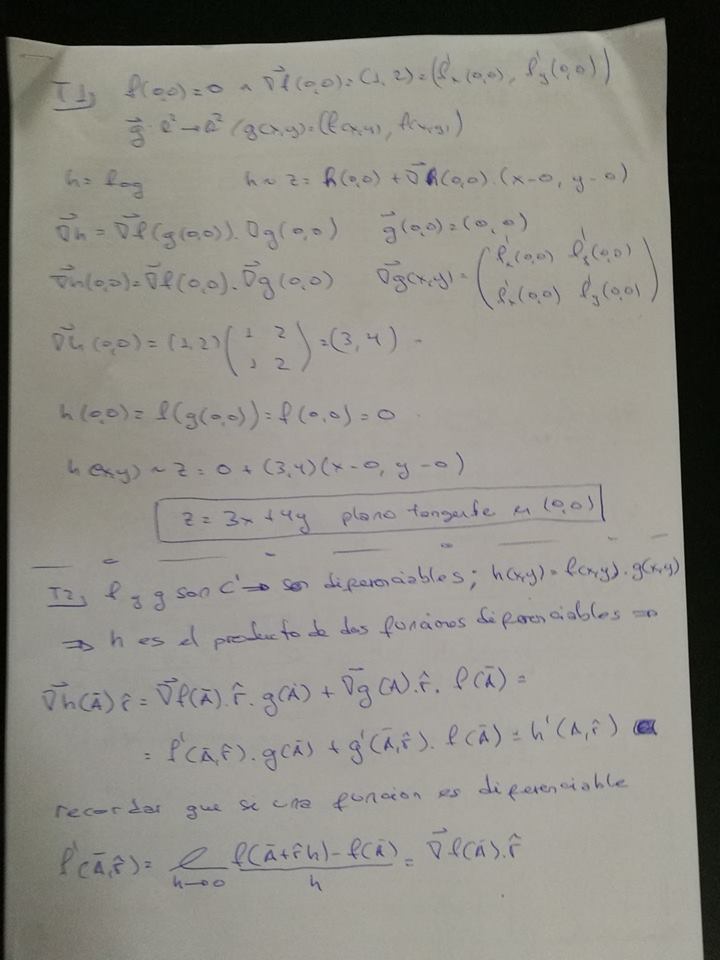 T1) f(0,0)=0 ∧ ∇f(0,0)=(1,2)=(f'x(0,0), f'y(0,0))
g: R²→R² / g(x,y)=(f(x,y), f(x,y))
h= fog h~z= h(0,0)+∇h(0,0).(x-0, y-0)
∇h=∇f(g(0,0)).∇g(0,0) g(0,0)=(0,0)
∇h(0,0)=∇f(0,0).∇g(0,0) ∇g(x,y)=(f'x(0,0) f'y(0,0)
f'x(0,0) f'y(0,0))
∇h(0,0)=(1,2)(1 2
1 2)=(3,4)
h(0,0)= f(g(0,0))=f(0,0)=0
h(x,y)~z=0+(3,4)(x-0, y-0)
z=3x+4y plano tangente en (0,0)
T2) f y g son C' ⇒ son diferenciables; h(x,y)=f(x,y).g(x,y)
⇒ h es el producto de dos funciones diferenciables ⇒
∇h(Ā)r̂=∇f(Ā).r̂.g(Ā)+∇g(A).r̂.f(Ā)=
= f'(Ā,r̂).g(Ā)+g'(Ā,r̂).f(Ā)=h'(A,r̂)
recordar que si una funcion es diferenciable
f'(Ā,r̂)= l h→0 f(Ā+r̂h)-f(Ā) / h = ∇f(Ā).r̂